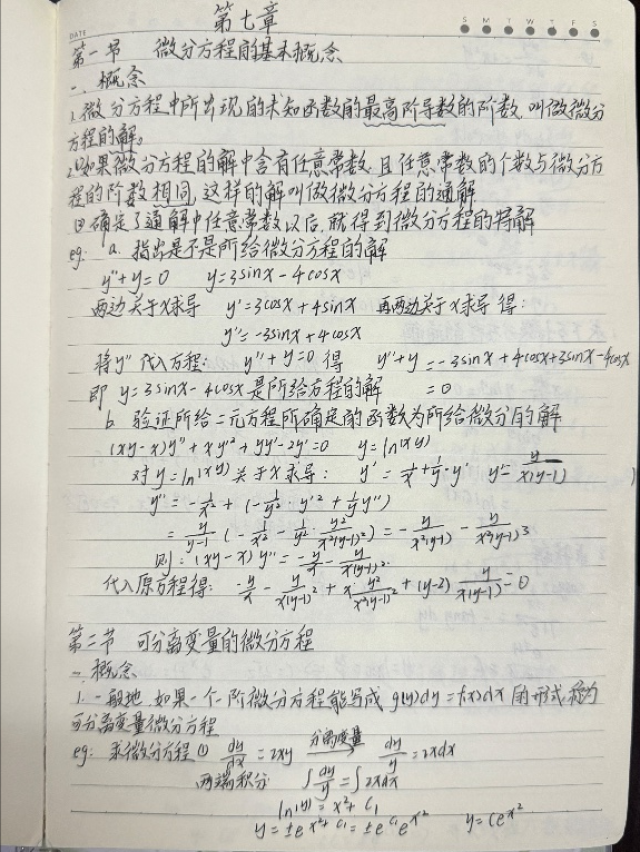 第七章
DATE
S M T W T F S
第一节 微分方程的基本概念
一、概念
1.微分方程中所出现的未知函数的最高阶导数的阶数,叫做微分
方程的解。
2.如果微分方程的解中含有任意常数,且任意常数的个数与微分方
程的阶数相同,这样的解叫做微分方程的通解
③确定了通解中任意常数以后,就得到微分方程的特解
eg: a. 指出是不是所给微分方程的解
y''+y=0 y=3sinx-4cosx
两边关于x求导 y'=3cosx+4sinx 再两边关于x求导得:
y''=-3sinx+4cosx
将y''代入方程: y''+y=0 得 y''+y=-3sinx+4cosx+3sinx-4cosx
即 y=3sinx-4cosx是所给方程的解 =0
b. 验证所给二元方程所确定的函数为所给微分的解
(xy-x)y''+xy'²+yy'-2y'=0 y=ln(xy)
对y=ln(xy)关于x求导: y'=1/x+1/y·y' y'=y/x(y-1)
y''=-1/x²+(-1/y²·y'²+1/y y'')
=y/y-1(-1/x²-1/y²·y²/x²(y-1)²)=-y/x²(y-1)-y/x²(y-1)³
则:(xy-x)y''=-y/x-y/x(y-1)²
代入原方程得: -y/x-y/x(y-1)²+x·y²/x²(y-1)²+(y-2)y/x(y-1)=0
第二节 可分离变量的微分方程
一、概念
1.一般地,如果一个一阶微分方程能写成g(y)dy=f(x)dx的形式,称为
可分离变量微分方程
eg: 求微分方程① dy/dx=2xy 分离变量→ dy/y=2xdx
两端积分 ∫dy/y=∫2xdx
ln|y|=x²+C₁
y=±e^(x²+C₁)=±e^C₁e^x² y=Ce^x²